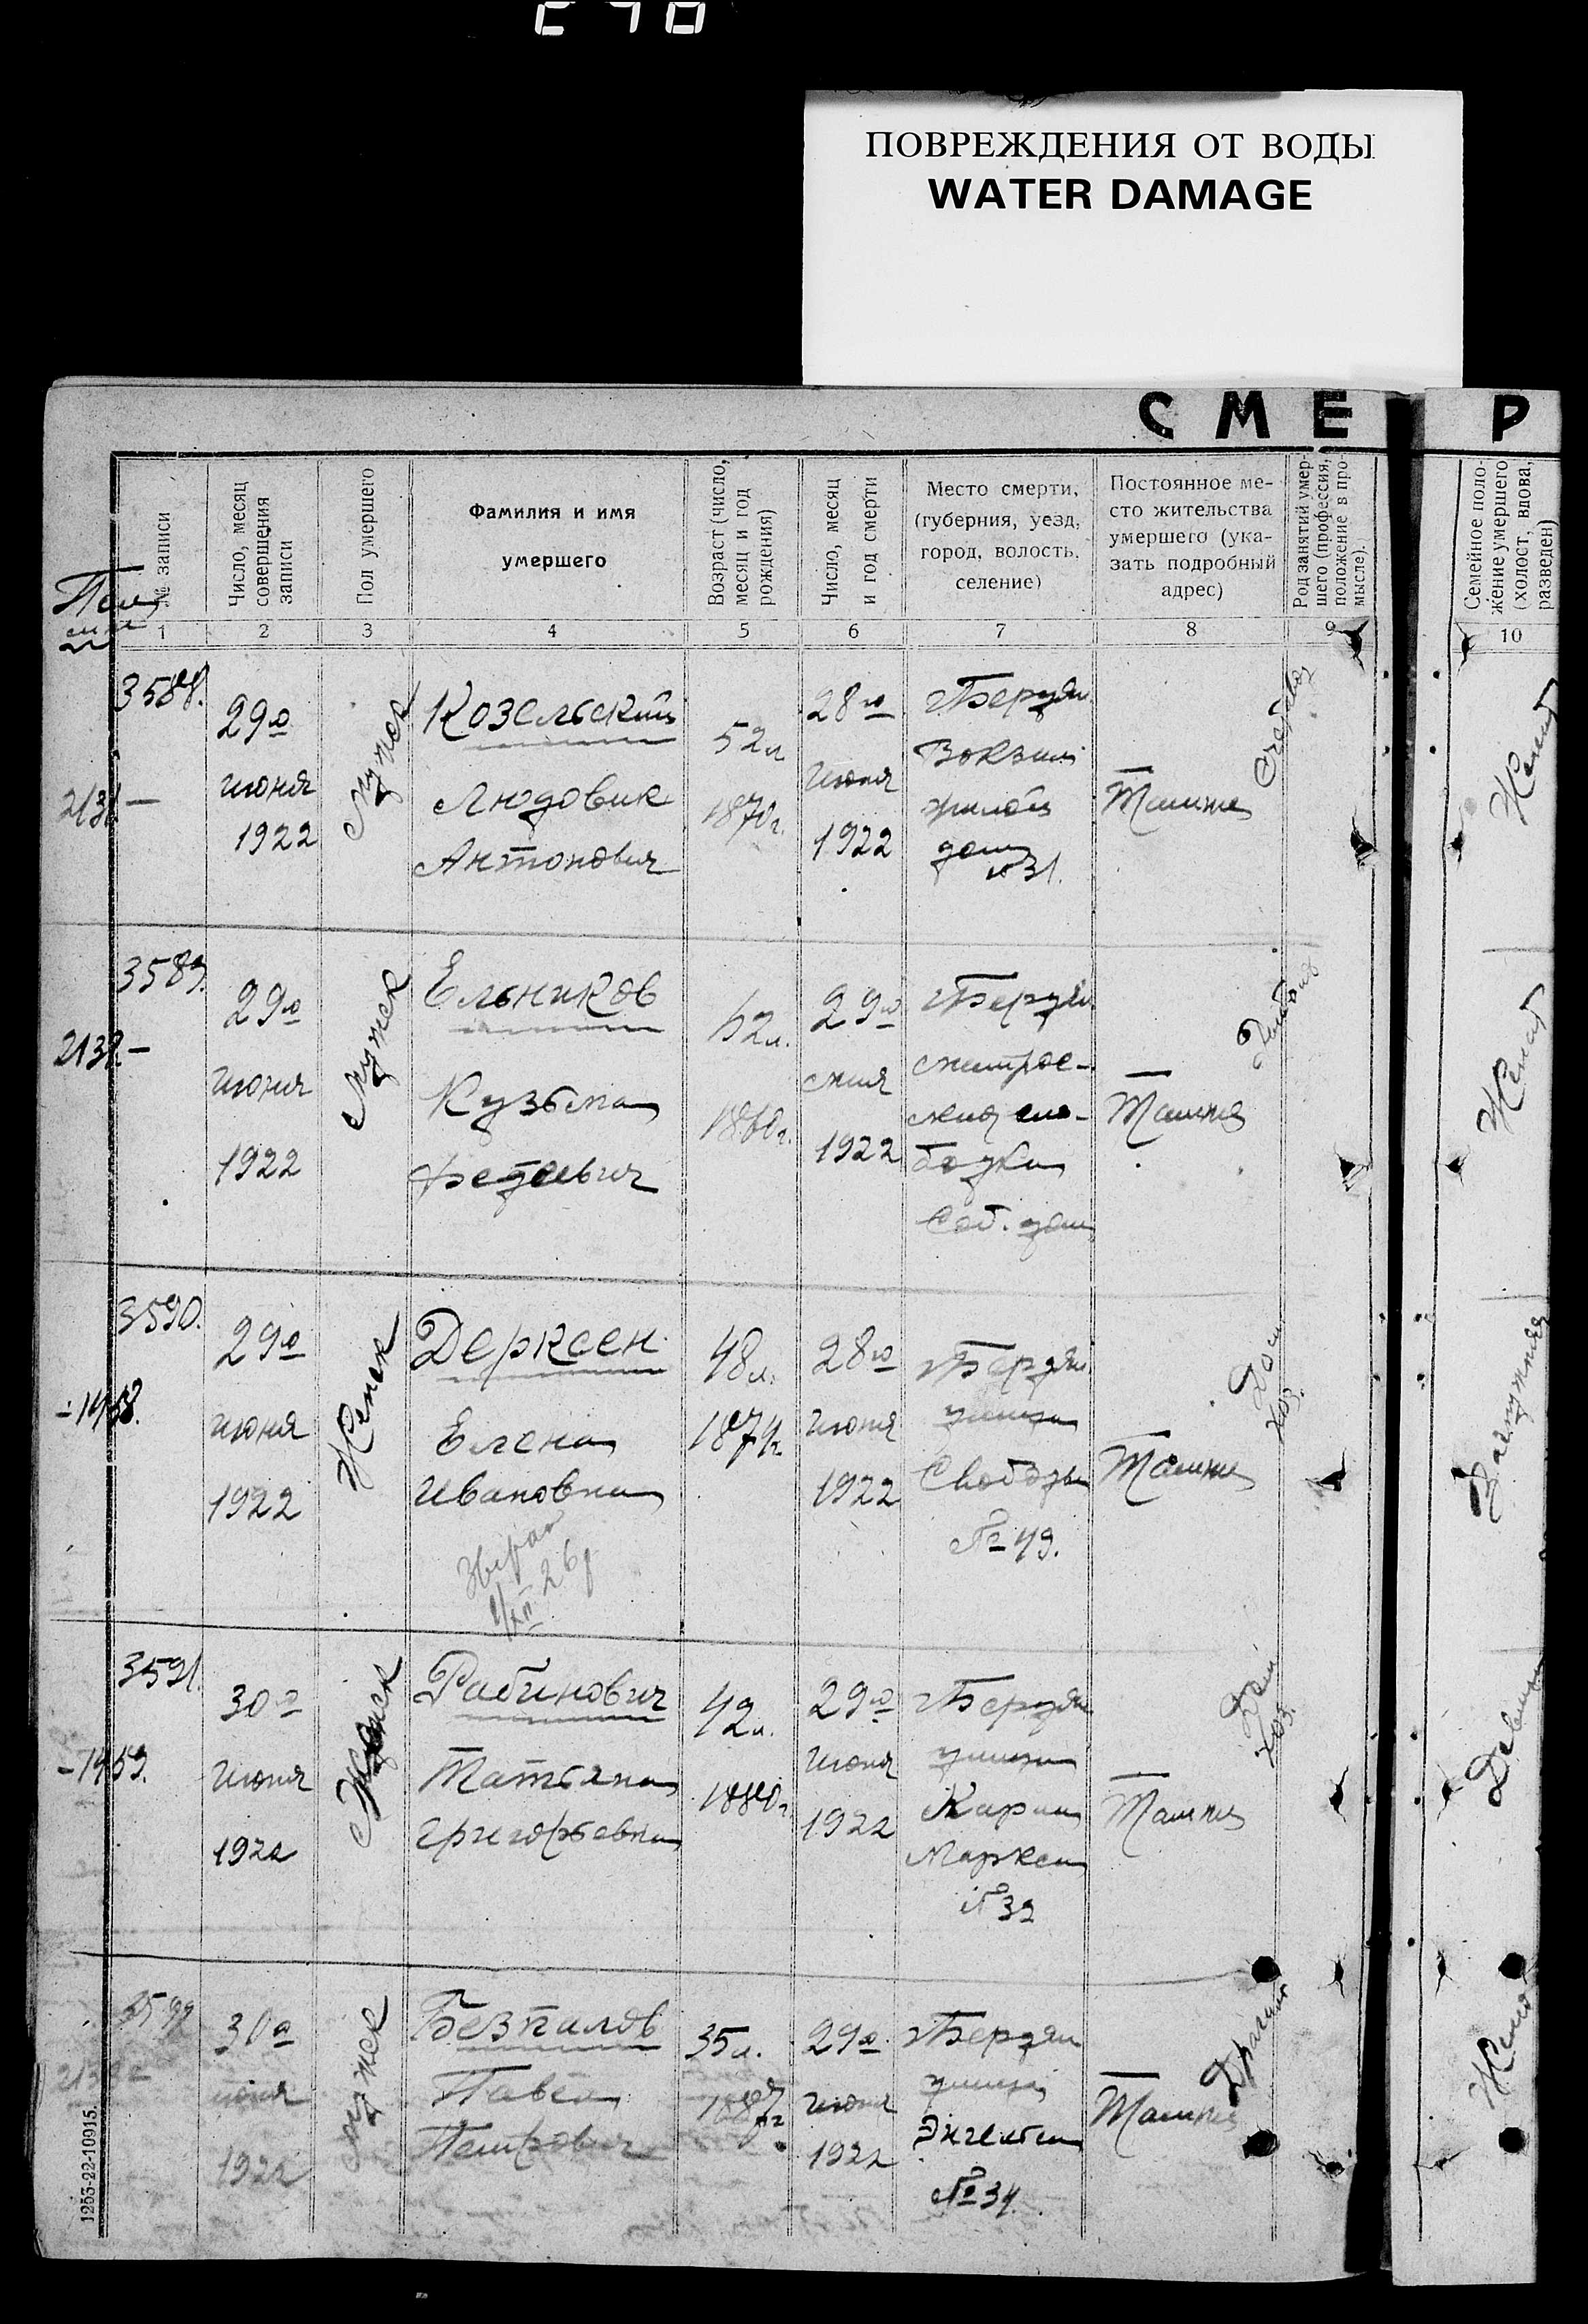 ПОВРЕЖДЕНИЯ ОТ ВОДЫ
WATER DAMAGE
С М Е Р
№ записи
Число, месяц
совершения
записи
Пол умершего
Фамилия и имя
умершего
Возраст (число,
месяц и год
рождения)
Число, месяц
и год смерти
Место смерти,
(губерния, уезд,
город, волость,
селение)
Постоянное ме-
сто жительства
умершего (ука-
зать подробный
адрес)
Род занятий умер-
шего (профессия,
положение в про-
мысле).
Семейное поло-
жение умершего
(холост, вдова,
разведен)
1 2 3 4 5 6 7 8 9 10
3588.
29го
июня
1922
Мужск
Козельский
Людовик
Антонович
52 л
1870 г.
28го
июня
1922
г Бердян
Вокзал
жилой
дом
№ 31.
Там же
Женат
3589.
29го
июня
1922
Мужск
Ельников
Кузьма
62 л.
1860 г.
29го
1922
г Бердян.
сло-
бодка
Соб. дом
Там же
Женат
3590.
29го
июня
1922
Женск
Дерксен
Елена
Ивановна
48 л.
1874 г.
28го
июня
1922
г Бердян
улица
Свободы
№ 49.
Там же
Дом
хоз.
Замужняя
3591.
30го
июня
1922
Женск
Рабинович
Татьяна
Григорьевна
42 л.
1880 г.
29го
июня
1922
г Бердян
улица
Карла
Маркса
№ 32
Там же
Дом
хоз.
30го
июня
1922
Мужск
Безпалов
Павел
Петрович
35 л.
1887 г
29го
июня
1922
г Бердян
улица
Энгельса
№ 34.
Там же
Женат
1253-22-10915.